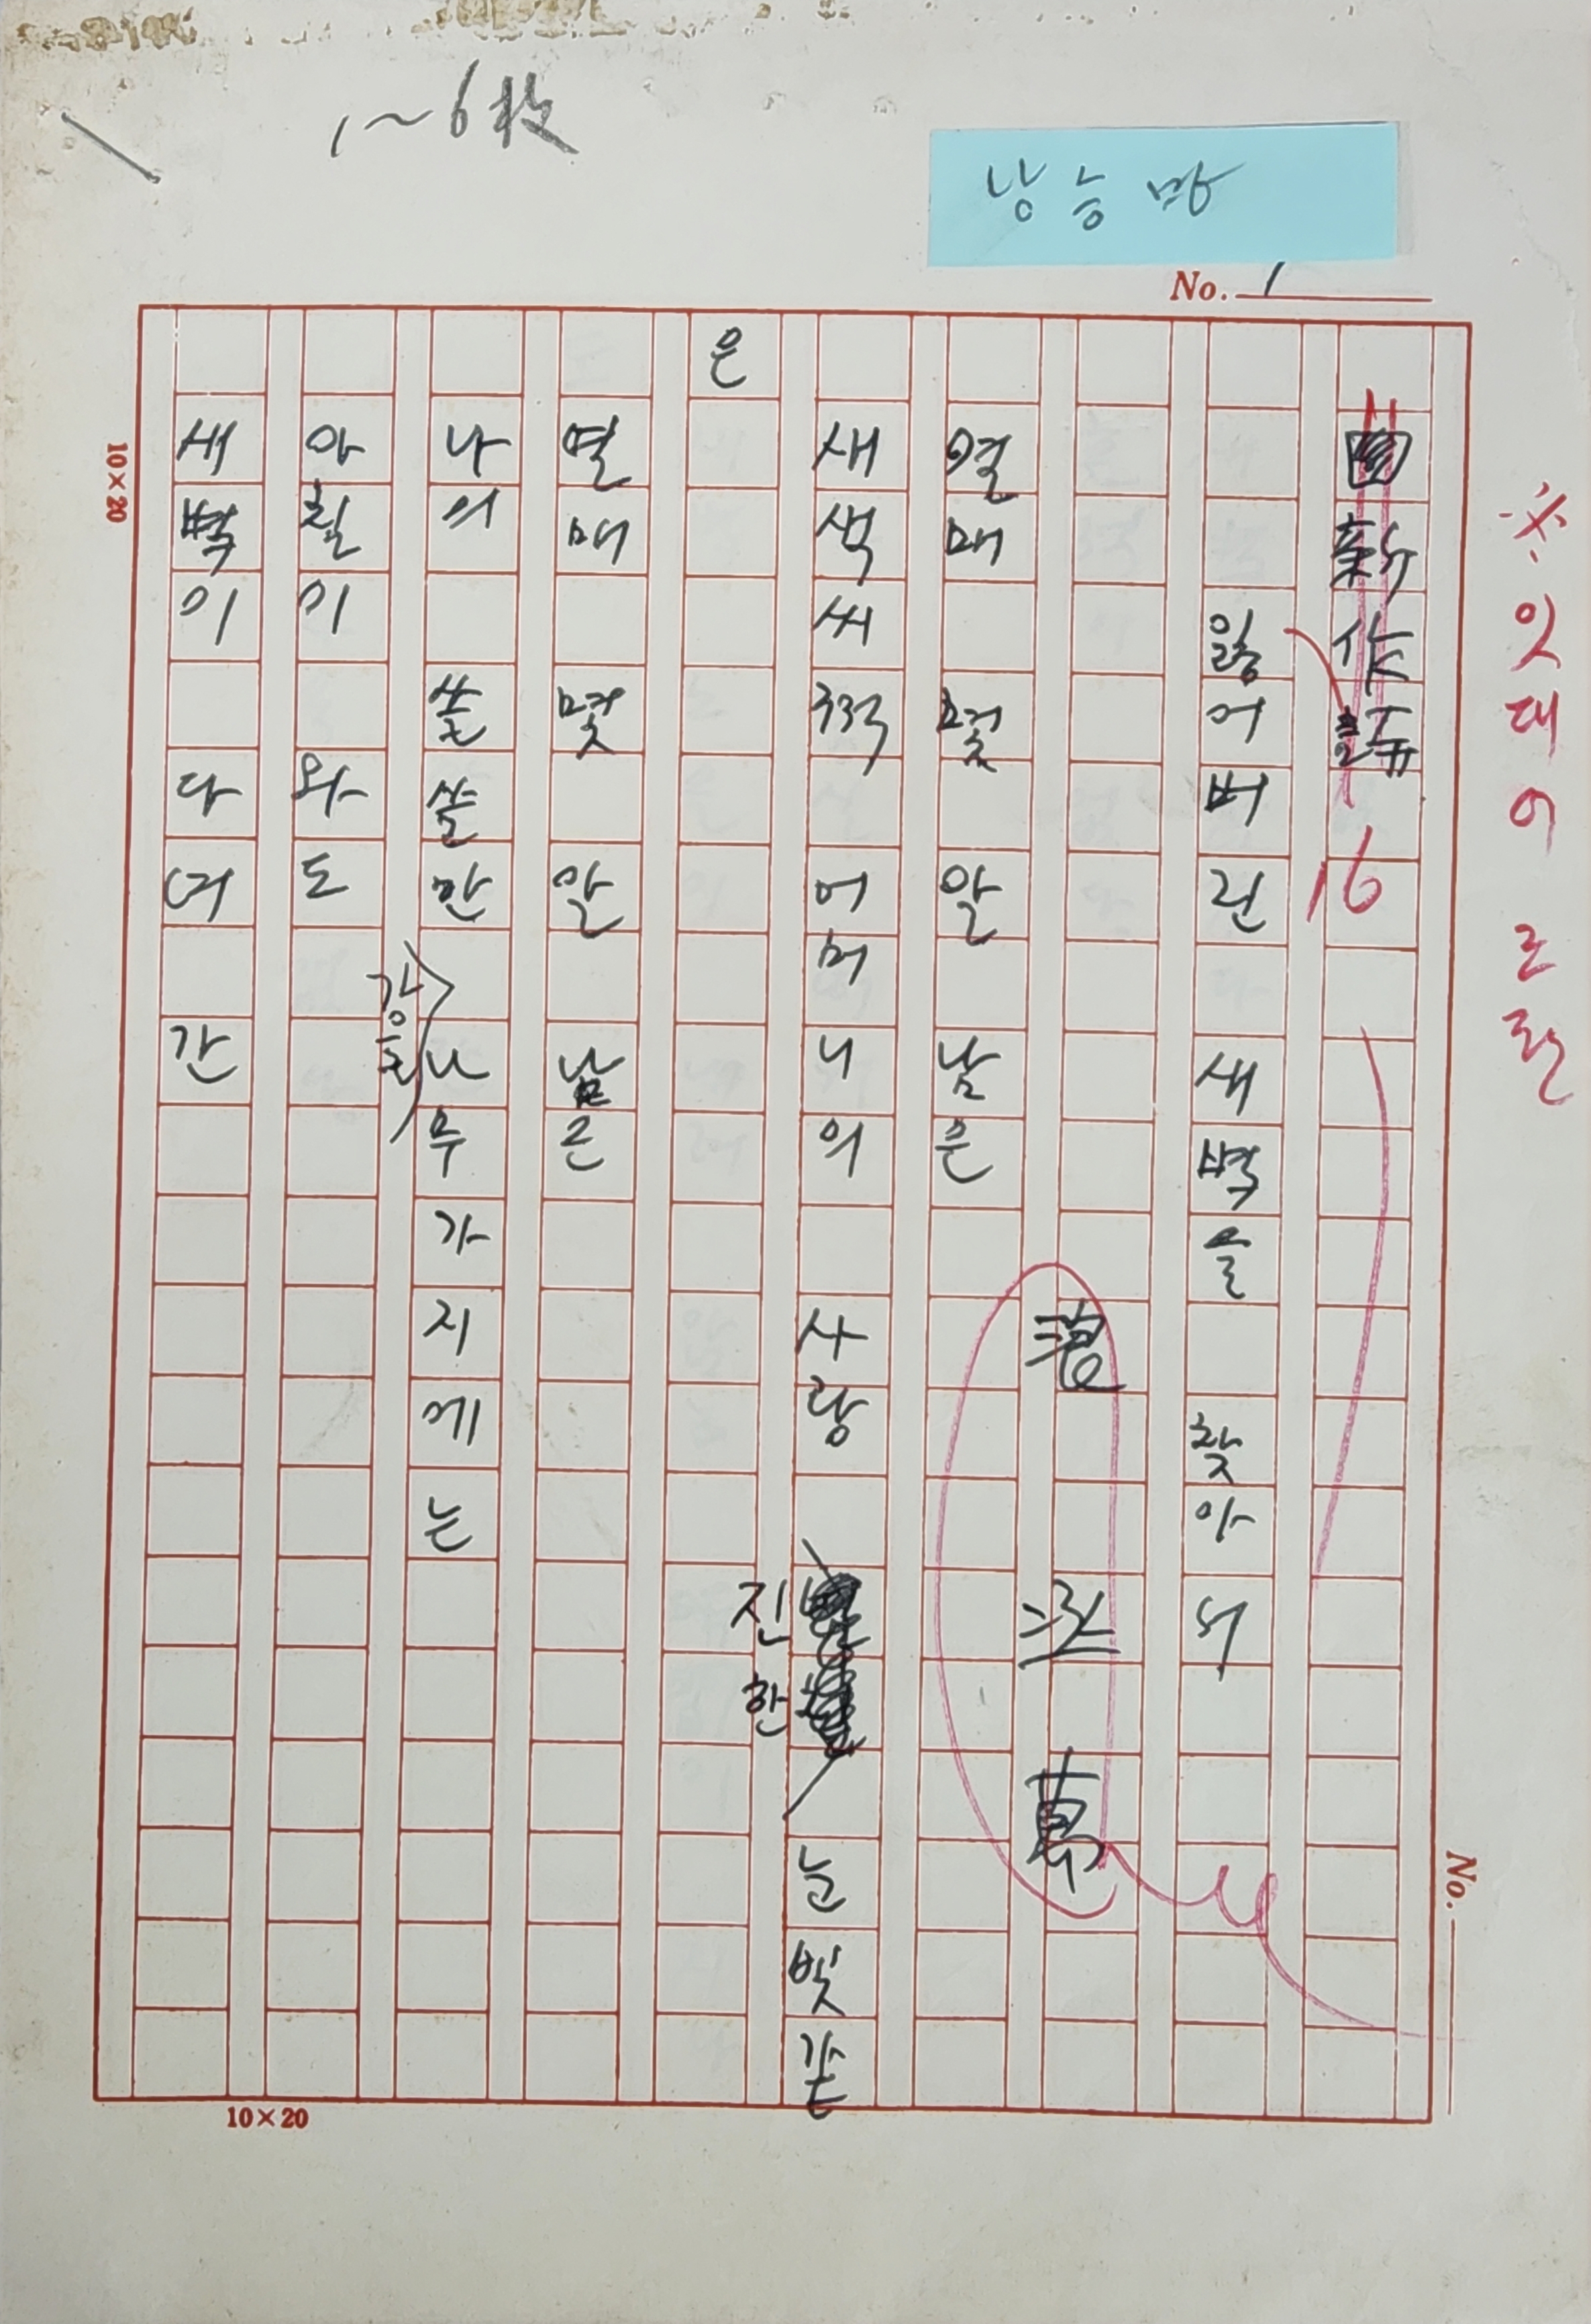 1~6枚
낭승만
No. 1
※ 잇대어 조란
新作詩
16
잃어버린 새벽을 찾아서
浪承萬
열매 몇 알 남은
새색씨 적 어머니의 사랑 진한 눈빛 같
은
열매 몇 알 남은
나의 쓸쓸한 감나무 가지에는
아침이 와도
새벽이 다녀간
No.
10×20
10×20